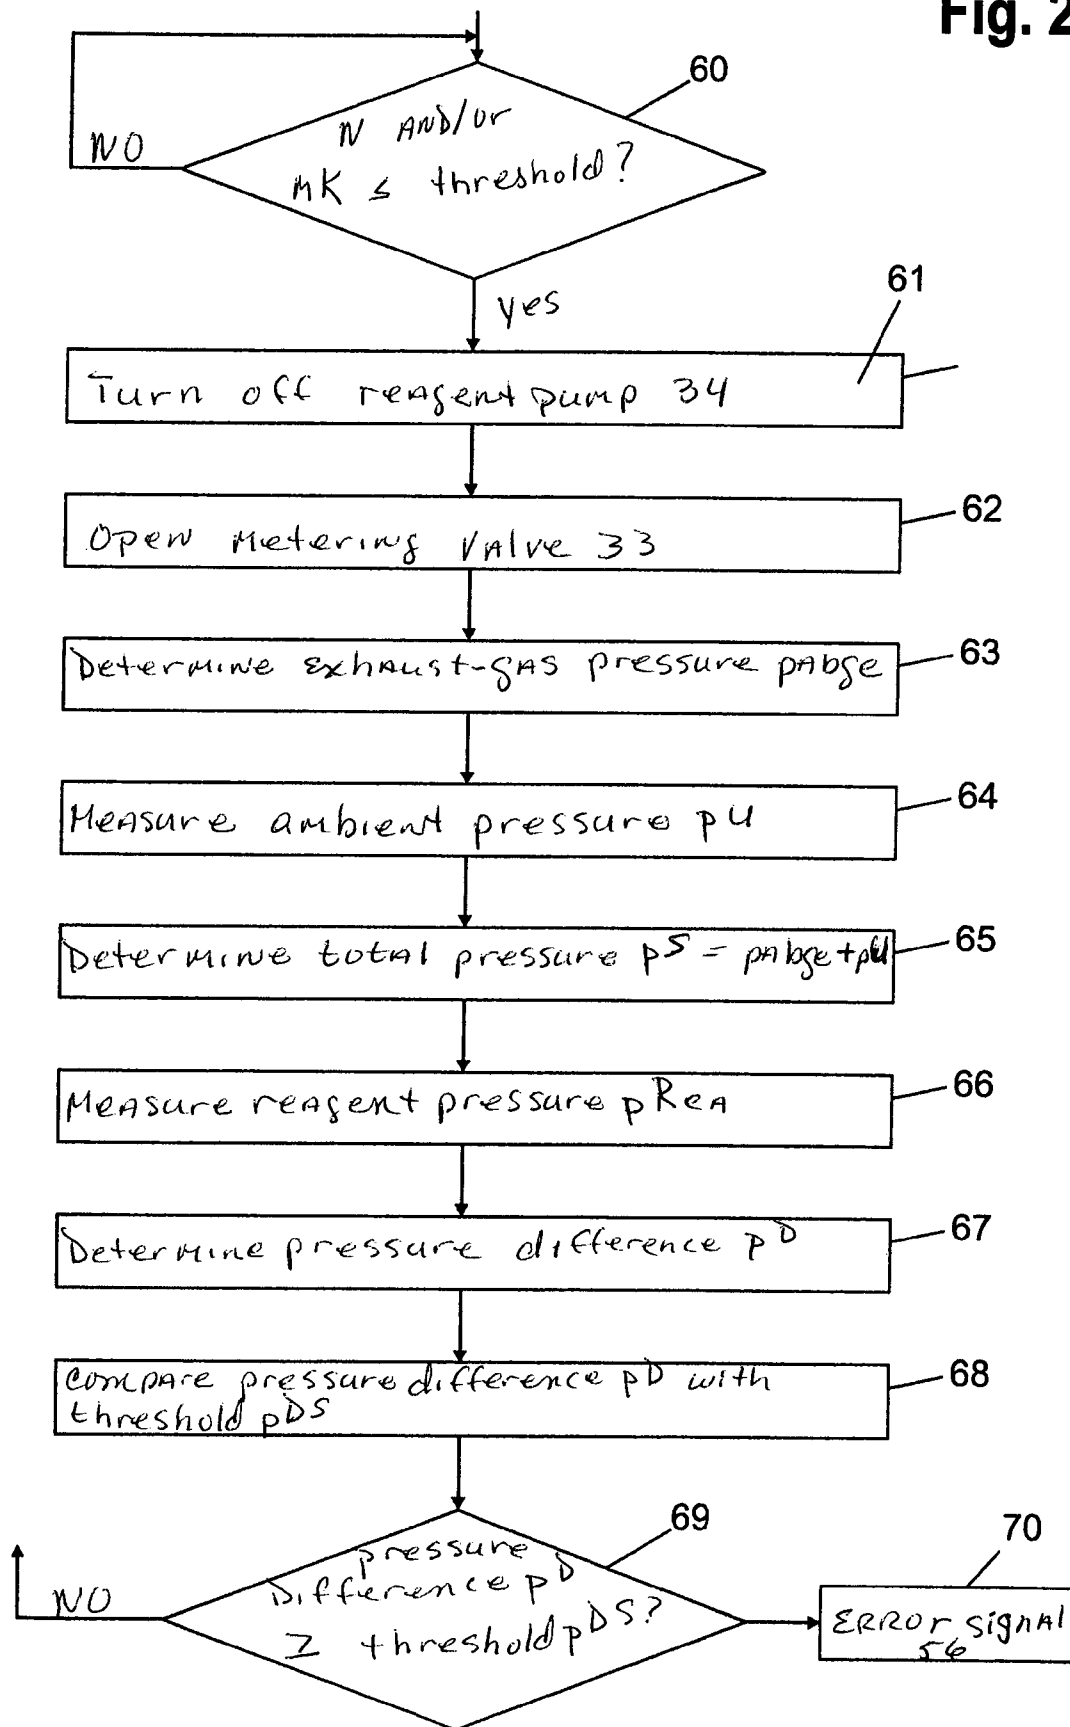 Fig. 2
60
N AND/or
mK ≤ threshold?
NO
yes
61
Turn off reagent pump 34
62
Open Metering Valve 33
63
Determine exhaust-gas pressure pAbge
64
Measure ambient pressure pU
65
Determine total pressure pS = pAbge + pU
66
Measure reagent pressure pReA
67
Determine pressure difference pD
68
compare pressure difference pD with
threshold pDS
69
pressure
Difference pD
≥ threshold pDS?
NO
70
ERROr signal
56